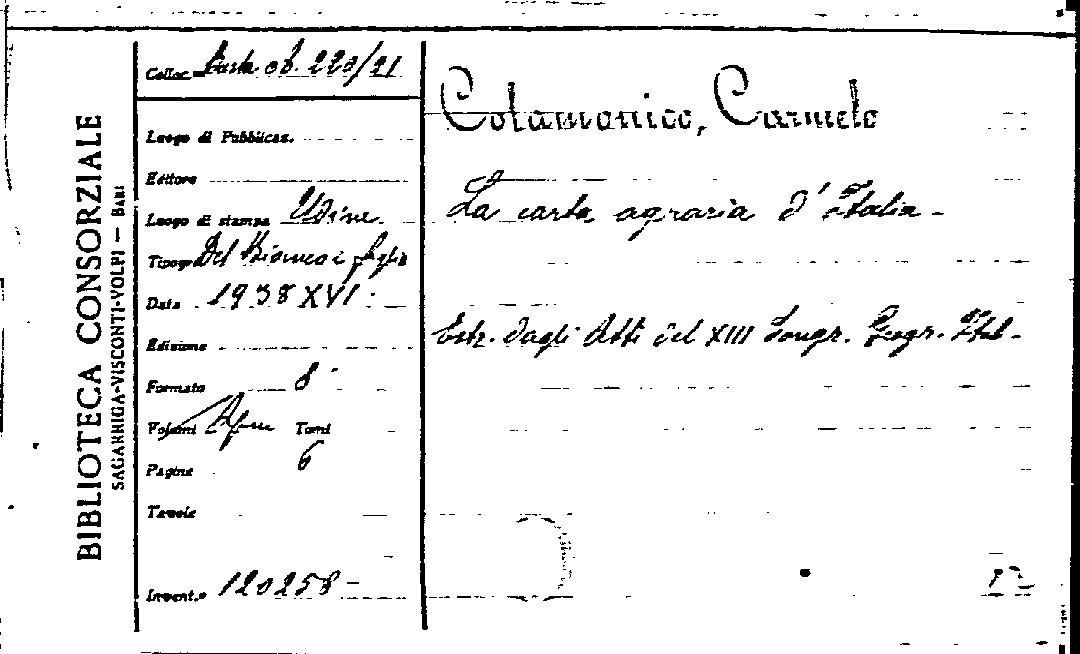 BIBLIOTECA CONSORZIALE
SAGARRIGA-VISCONTI-VOLPI — BARI
Colloc. Busta ob. 220/21
Luogo di Pubblicaz.
Editore
Luogo di stampa Udine
Tipogr. Del Bianco e figlio
Data 1938 XVI
Edizione
Formato 8°
Volumi Tomi
Pagine 6
Tavole
Invent.° 120258
Colamonico, Carmelo
La carta agraria d'Italia -
Estr. dagli Atti del XIII Congr. Geogr. Ital.